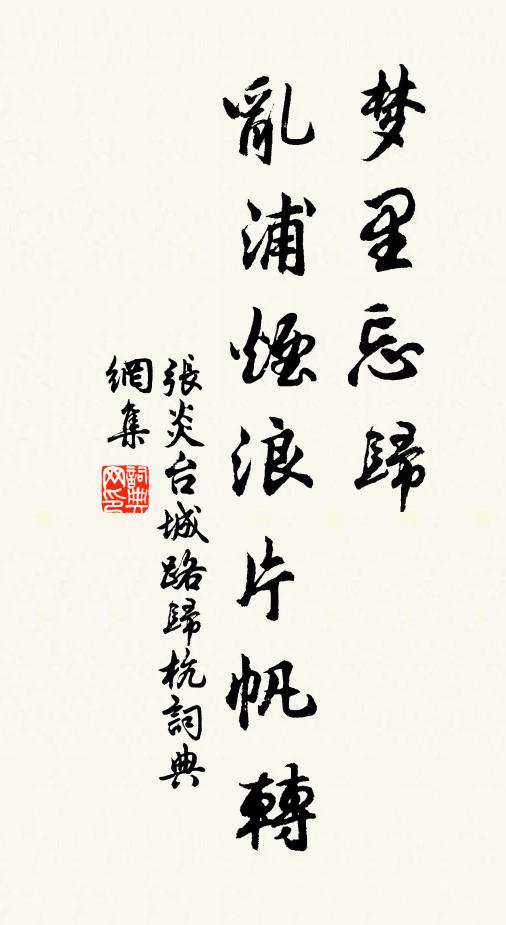 梦里忘歸
亂浦煙浪片帆轉
張炎台城路歸杭詞典
網集
詞典
网印